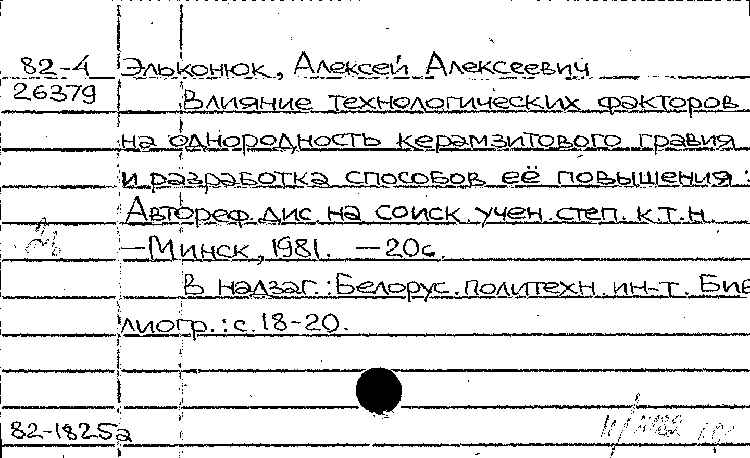 82-4 Эльконюк, Алексей Алексеевич
26379 Влияние технологических факторов
на однородность керамзитового гравия
и разработка способов её повышения:
Автореф. дис. на соиск. учен. степ. к.т.н.
—Минск, 1981. —20с.
В надзаг.: Белорус. политехн. ин-т. Биб
лиогр.: с. 18-20.
82-1825а